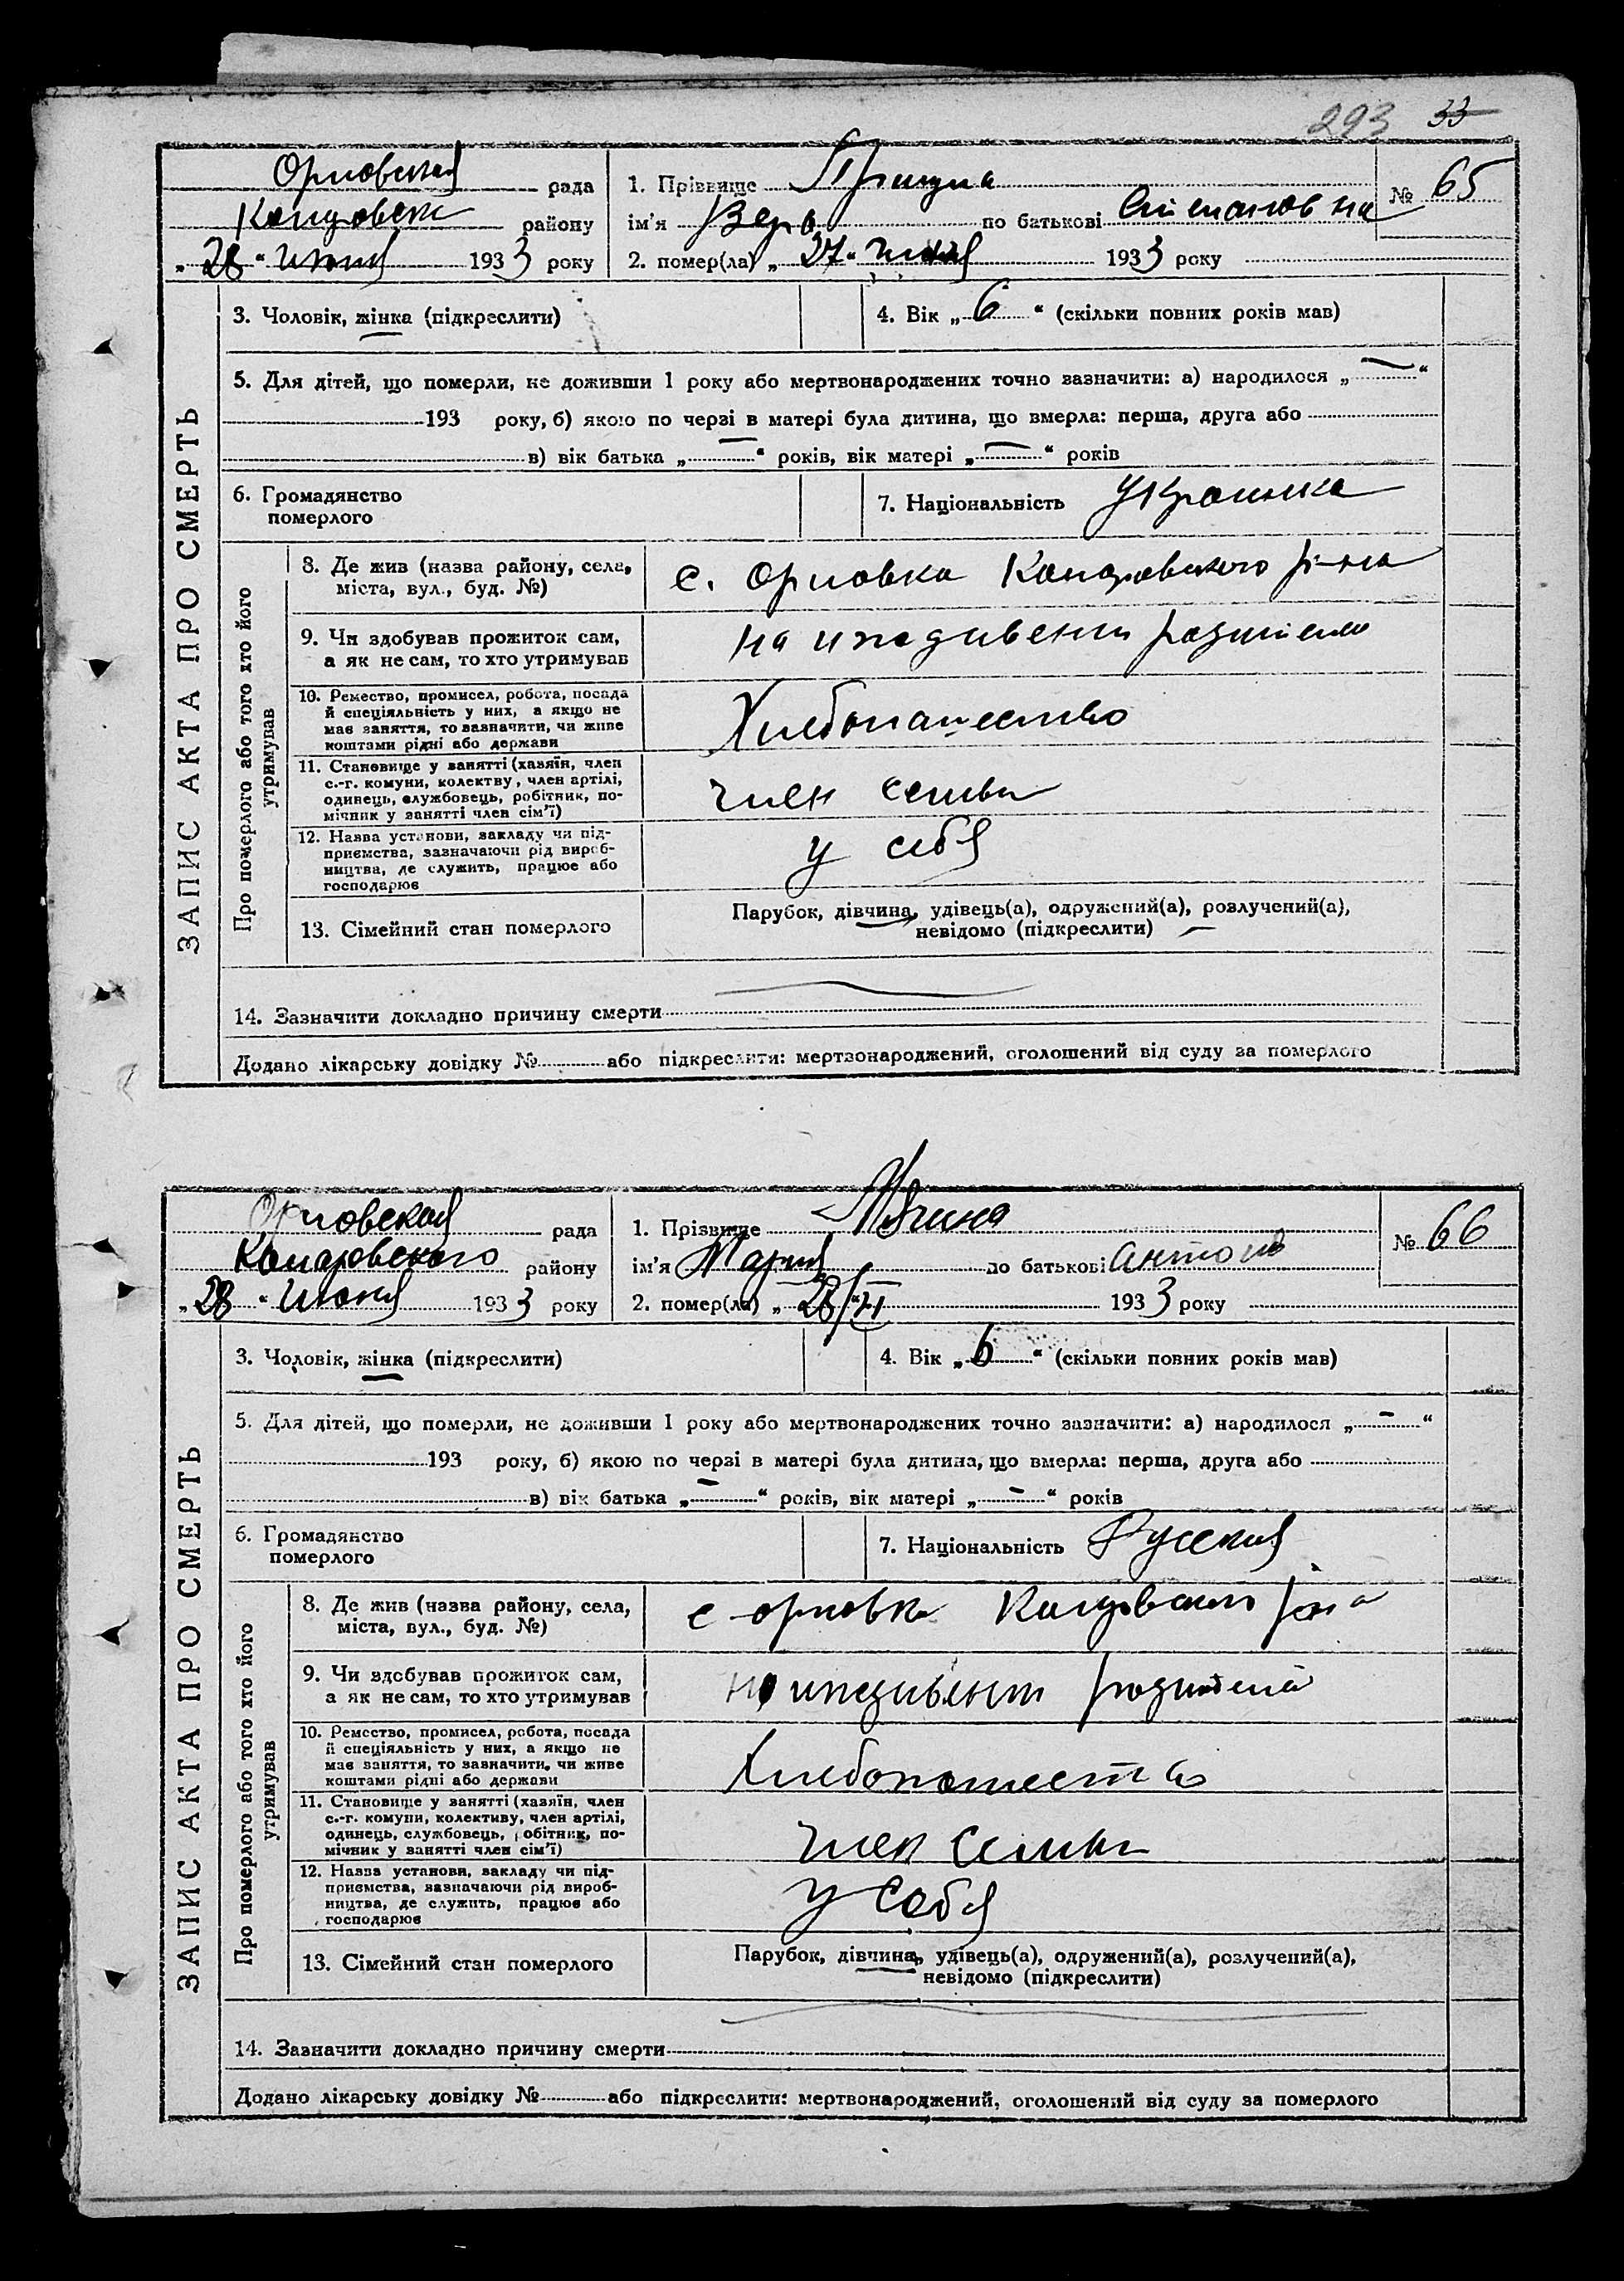 293 33
Орловская рада
1. Прізвище
№ 65
району
ім'я Вера по батькові Степановна
„ 28 “ июня 1933 року
2. помер(ла) „ 27 “ июня 1933 року
ЗАПИС АКТА ПРО СМЕРТЬ
3. Чоловік, жінка (підкреслити)
4. Вік „ 6 “ (скільки повних років мав)
5. Для дітей, що померли, не доживши 1 року або мертвонароджених точно зазначити: а) народилося „ — “
193 року, б) якою по черзі в матері була дитина, що вмерла: перша, друга або
в) вік батька „ — “ років, вік матері „ — “ років
6. Громадянство
померлого
7. Національність Украинка
Про померлого або того хто його
утримував
8. Де жив (назва району, села,
міста, вул., буд. №)
с. Орловка р-на
9. Чи здобував прожиток сам,
а як не сам, то хто утримував
на иждивении родителей
10. Ремество, промисел, робота, посада
й спеціяльність у них, а якщо не
має заняття, то зазначити, чи живе
коштами рідні або держави
Хлебопашество
11. Становище у занятті (хазяїн, член
с.-г. комуни, колектву, член артілі,
одинець, службовець, робітник, по-
мічник у занятті член сім'ї)
член семьи
12. Назва установи, закладу чи під-
приємства, зазначаючи рід вироб-
ництва, де служить, працює або
господарює
у себя
13. Сімейний стан померлого
Парубок, дівчина, удівець(а), одружений(а), розлучений(а),
невідомо (підкреслити)
14. Зазначити докладно причину смерти
Додано лікарську довідку № або підкреслити: мертвонароджений, оголошений від суду за померлого
Орловская рада
1. Прізвище
№ 66
району
ім'я Мария по батькові Антонов
„ 28 “ Июня 1933 року
2. помер(ла) „ 28/VI 1933 року
ЗАПИС АКТА ПРО СМЕРТЬ
3. Чоловік, жінка (підкреслити)
4. Вік „ 6 “ (скільки повних років мав)
5. Для дітей, що померли, не доживши 1 року або мертвонароджених точно зазначити: а) народилося „ - “
193 року, б) якою по черзі в матері була дитина, що вмерла: перша, друга або
в) вік батька „ - “ років, вік матері „ - “ років
6. Громадянство
померлого
7. Національність Русская
Про померлого або того хто його
утримував
8. Де жив (назва району, села,
міста, вул., буд. №)
с орловка р-на
9. Чи здобував прожиток сам,
а як не сам, то хто утримував
на иждивении родителей
10. Ремество, промисел, робота, посада
й спеціяльність у них, а якщо не
має заняття, то зазначити, чи живе
коштами рідні або держави
Хлебопашество
11. Становище у занятті (хазяїн, член
с.-г. комуни, колективу, член артілі,
одинець, службовець, робітник, по-
мічник у занятті член сім'ї)
член семьи
12. Назва установи, закладу чи під-
приємства, зазначаючи рід вироб-
ництва, де служить, працює або
господарює
у собя
13. Сімейний стан померлого
Парубок, дівчина, удівець(а), одружений(а), розлучений(а),
невідомо (підкреслити)
14. Зазначити докладно причину смерти
Додано лікарську довідку № або підкреслити: мертвонароджений, оголошений від суду за померлого